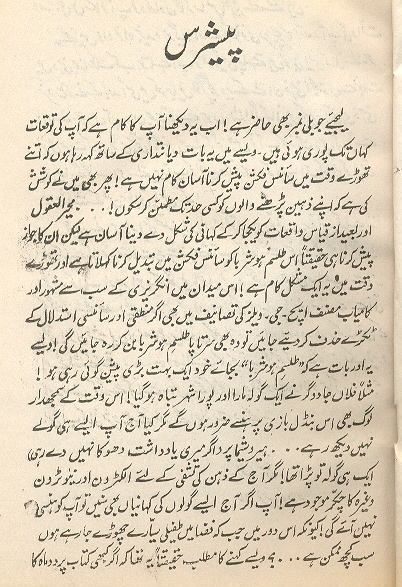 پیشرس
لیجئے جوبلی نمبر بھی حاضر ہے! اب یہ دیکھنا آپ کا کام ہے کہ آپ کی توقعات
کہاں تک پوری ہوئی ہیں۔ ویسے میں یہ بات دیانتداری کے ساتھ کہہ رہا ہوں کہ اتنے
تھوڑے وقت میں سائنس فکشن پیش کرنا آسان کام نہیں ہے! پھر بھی میں نے کوشش
کی ہے کہ اپنے ذہین پڑھنے والوں کو کسی حد تک مطمئن کر سکوں! ... محیر العقول
اور بعید از قیاس واقعات کو یکجا کر کے کہانی کی شکل دے دینا آسان ہے لیکن ان کا جواز
پیش کرنا ہی حقیقتاً اس طلسم ہوشربا کو سائنس فکشن میں تبدیل کرنا کہلاتا ہے اور تھوڑے
وقت میں یہ ایک مشکل کام ہے! اس میدان میں انگریزی کے سب سے مشہور اور
کامیاب مصنف ایچ۔ جی۔ ویلز کی تصانیف میں بھی اگر منطقی اور سائنسی استدلال کے
ٹکڑے حذف کر دیئے جائیں تو وہ بھی سرتاپا طلسم ہوشربا بن کر رہ جائیں گی! ویسے
یہ اور بات ہے کہ "طلسم ہوشربا" بجائے خود ایک بہت بڑی پیشن گوئی رہی ہو!
مثلاً فلاں جادوگر نے ایک گولہ مارا اور پورا شہر تباہ ہو گیا! اس وقت کے سمجھدار
لوگ بھی اس بنڈل بازی پر ہنسے ضرور ہوں گے مگر کیا آج آپ ایسے ہی گولے
نہیں دیکھ رہے ... ہیروشیما پر (اگر میری یادداشت دھوکا نہیں دے رہی)
ایک ہی گولہ تو پڑا تھا! مگر آج کے ذہن کی تشفی کے لئے الکٹرون اور نیوٹرون
وغیرہ کا چکر موجود ہے! آپ اگر آج ایسے گولوں کی کہانیاں بھی سنیں تو آپ کو ہنسی
نہیں آئے گی! کیونکہ اس دور میں جب کہ فضا میں طفیلی سیارے چھوڑے جا رہے ہوں
سب کچھ ممکن ہے ... ویسے کہنے کا مطلب حقیقتاً یہ تھا کہ اگر کبھی کتاب پر دو ماہ کا